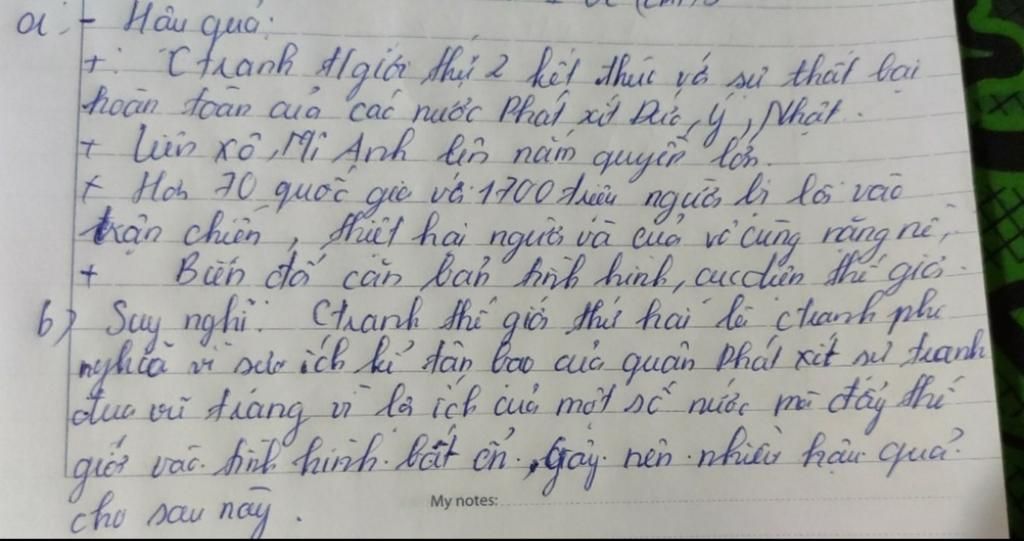 a. - Hâu quả:
+ Ctranh tgiới thứ 2 kết thúc vớ sự thất bại
hoàn toàn của các nước Phát xít Đức, ý, Nhật.
+ Liên xô, Mĩ Anh lên nắm quyền lớn.
+ Hơn 70 quốc gia và 1700 triệu người bị lôi vào
trận chiến, thiệt hại người và của vô cùng nặng nề,
+ Biến đổ căn bản tình hình, cục diện thế giới.
b) Suy nghĩ: Ctranh thế giới thứ hai là ctranh phi
nghĩa vì sự ích kỉ tàn bạo của quân Phát xít sự tranh
đua vũ trang vì lợi ích của một số nước mà đẩy thế
giới vào tình hình bất ổn, gây nên nhiều hậu quả
cho sau này.
My notes: